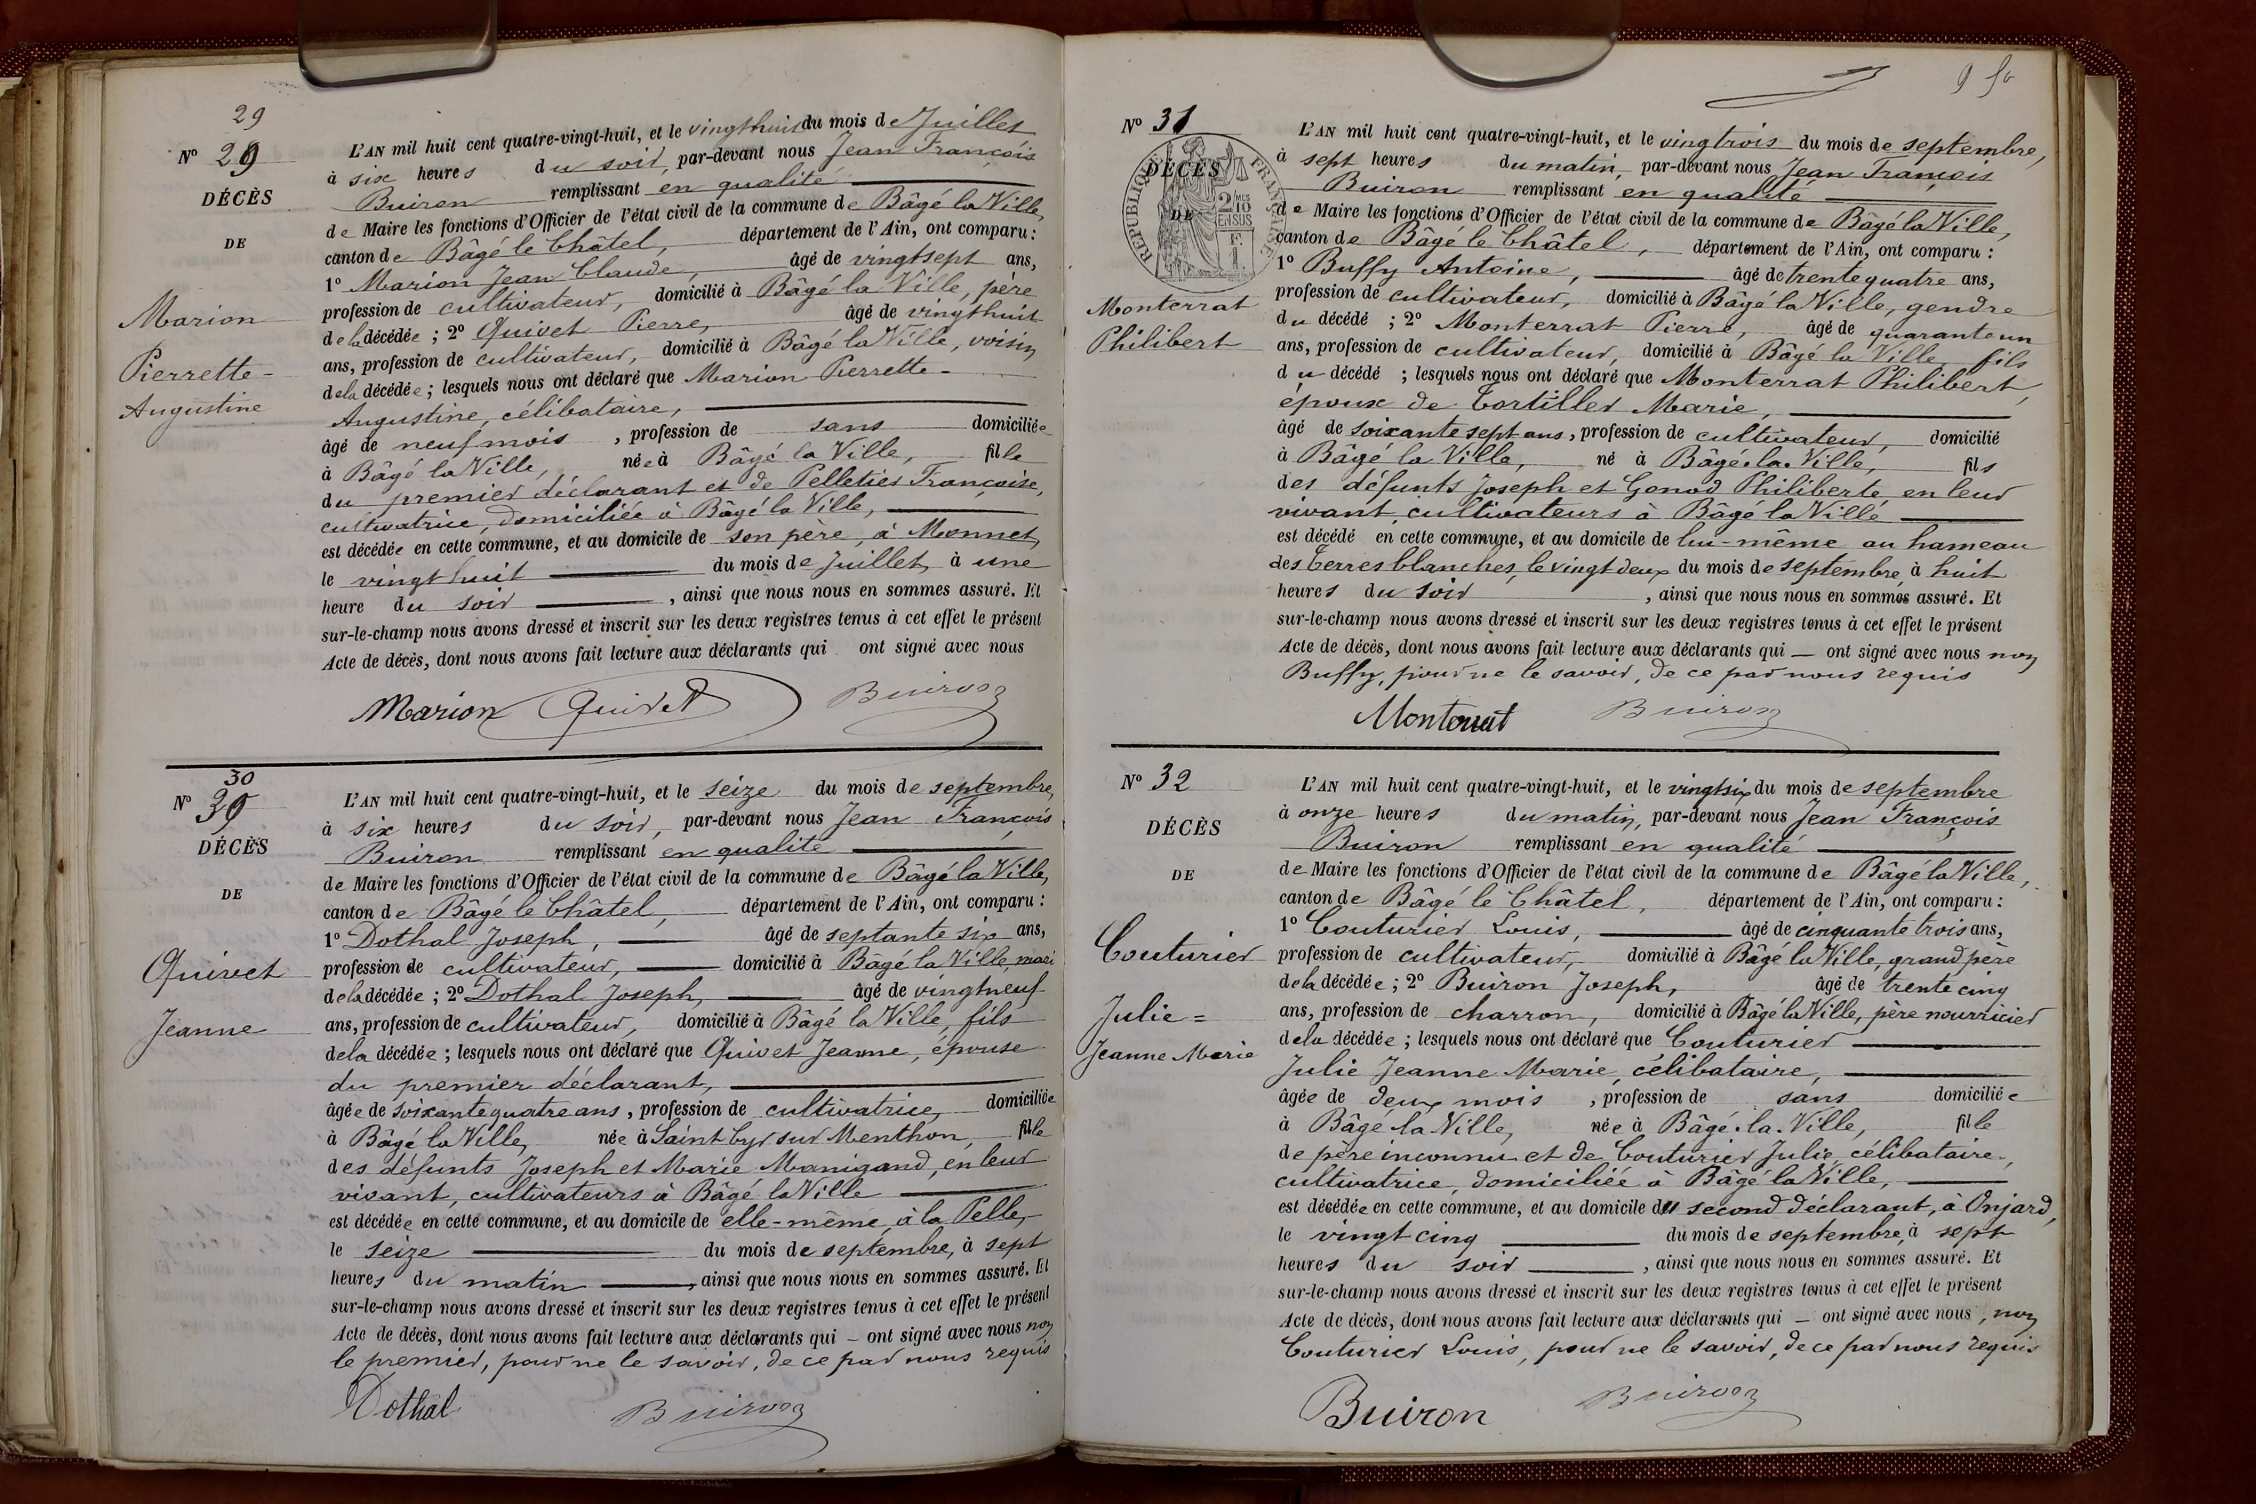 29
N° 29
DÉCÈS
DE
Marion
Pierrette-
Augustine
L'AN mil huit cent quatre-vingt-huit, et le vingthuit du mois de Juillet
à six heures du soir, par-devant nous Jean François
Buiron remplissant en qualité
de Maire les fonctions d'Officier de l'état civil de la commune de Bâgé la Ville,
canton de Bâgé le Châtel, département de l'Ain, ont comparu :
1° Marion Jean Claude, âgé de vingtsept ans,
profession de cultivateur, domicilié à Bâgé la Ville, père
de la décédée ; 2° Quivet Pierre, âgé de vingthuit
ans, profession de cultivateur, domicilié à Bâgé la Ville, voisin
de la décédée ; lesquels nous ont déclaré que Marion Pierrette-
Augustine, célibataire,
âgé de neuf mois , profession de sans domiciliée
à Bâgé la Ville, née à Bâgé la Ville, fille
du premier déclarant et de Pelletier Françoise,
cultivatrice, domiciliée à Bâgé la Ville,
est décédée en cette commune, et au domicile de son père, à Monnet,
le vingt huit du mois de Juillet, à une
heure du soir , ainsi que nous nous en sommes assuré. Et
sur-le-champ nous avons dressé et inscrit sur les deux registres tenus à cet effet le présent
Acte de décès, dont nous avons fait lecture aux déclarants qui ont signé avec nous
Marion Quivet Buiron
30
N° 30
DÉCÈS
DE
Quivet
Jeanne
L'AN mil huit cent quatre-vingt-huit, et le seize du mois de septembre,
à six heures du soir, par-devant nous Jean François
Buiron remplissant en qualité
de Maire les fonctions d'Officier de l'état civil de la commune de Bâgé la Ville,
canton de Bâgé le Châtel, département de l'Ain, ont comparu :
1° Dothal Joseph, âgé de septante six ans,
profession de cultivateur, domicilié à Bâgé la Ville, mari
de la décédée ; 2° Dothal Joseph, âgé de vingtneuf
ans, profession de cultivateur, domicilié à Bâgé la Ville, fils
de la décédée ; lesquels nous ont déclaré que Quivet Jeanne, épouse
du premier déclarant,
âgée de soixante quatre ans, profession de cultivatrice, domiciliée
à Bâgé la Ville, née à Saint Cyr sur Menthon, fille
des défunts Joseph et Marie Manigand, en leur
vivant, cultivateurs à Bâgé la Ville
est décédée en cette commune, et au domicile de elle-même, à la Pelle,
le seize du mois de septembre, à sept
heures du matin , ainsi que nous nous en sommes assuré. Et
sur-le-champ nous avons dressé et inscrit sur les deux registres tenus à cet effet le présent
Acte de décès, dont nous avons fait lecture aux déclarants qui — ont signé avec nous non
le premier, pour ne le savoir, de ce par nous requis
Dothal Buiron
9
N° 31
DÉCÈS
DE
RÉPUBLIQUE FRANÇAISE
2 MES
10
EN SUS
Monterrat
Philibert
L'AN mil huit cent quatre-vingt-huit, et le vingtrois du mois de septembre,
à sept heures du matin, par-devant nous Jean François
Buiron remplissant en qualité
de Maire les fonctions d'Officier de l'état civil de la commune de Bâgé la Ville,
canton de Bâgé le Châtel, département de l'Ain, ont comparu :
1° Buffy Antoine, âgé de trente quatre ans,
profession de cultivateur, domicilié à Bâgé la Ville, gendre
du décédé ; 2° Monterrat Pierre, âgé de quarante un
ans, profession de cultivateur, domicilié à Bâgé la Ville, fils
du décédé ; lesquels nous ont déclaré que Monterrat Philibert,
époux de Tortiller Marie,
âgé de soixante sept ans, profession de cultivateur, domicilié
à Bâgé la Ville, né à Bâgé-la-Ville, fils
des défunts Joseph et Genod Philiberte, en leur
vivant, cultivateurs à Bâgé la Ville
est décédé en cette commune, et au domicile de lui-même au hameau
des Terres blanches, le vingt deux du mois de septembre, à huit
heures du soir , ainsi que nous nous en sommes assuré. Et
sur-le-champ nous avons dressé et inscrit sur les deux registres tenus à cet effet le présent
Acte de décès, dont nous avons fait lecture aux déclarants qui — ont signé avec nous non
Buffy, pour ne le savoir, de ce par nous requis
Monterrat Buiron
N° 32
DÉCÈS
DE
Couturier
Julie=
Jeanne Marie
L'AN mil huit cent quatre-vingt-huit, et le vingtsix du mois de septembre
à onze heures du matin, par-devant nous Jean François
Buiron remplissant en qualité
de Maire les fonctions d'Officier de l'état civil de la commune de Bâgé la Ville,
canton de Bâgé le Châtel, département de l'Ain, ont comparu :
1° Couturier Louis, âgé de cinquante trois ans,
profession de cultivateur, domicilié à Bâgé la Ville, grand père
de la décédée ; 2° Buiron Joseph, âgé de trente cinq
ans, profession de charron, domicilié à Bâgé la Ville, père nourricier
de la décédée ; lesquels nous ont déclaré que Couturier
Julie Jeanne Marie, célibataire,
âgée de deux mois , profession de sans domiciliée
à Bâgé la Ville, née à Bâgé-la-Ville, fille
de père inconnu et de Couturier Julie, célibataire,
cultivatrice, domiciliée à Bâgé la Ville,
est décédée en cette commune, et au domicile du second déclarant, à Onjard,
le vingt cinq du mois de septembre, à sept
heures du soir , ainsi que nous nous en sommes assuré. Et
sur-le-champ nous avons dressé et inscrit sur les deux registres tenus à cet effet le présent
Acte de décès, dont nous avons fait lecture aux déclarants qui — ont signé avec nous, non
Couturier Louis, pour ne le savoir, de ce par nous requis
Buiron Buiron